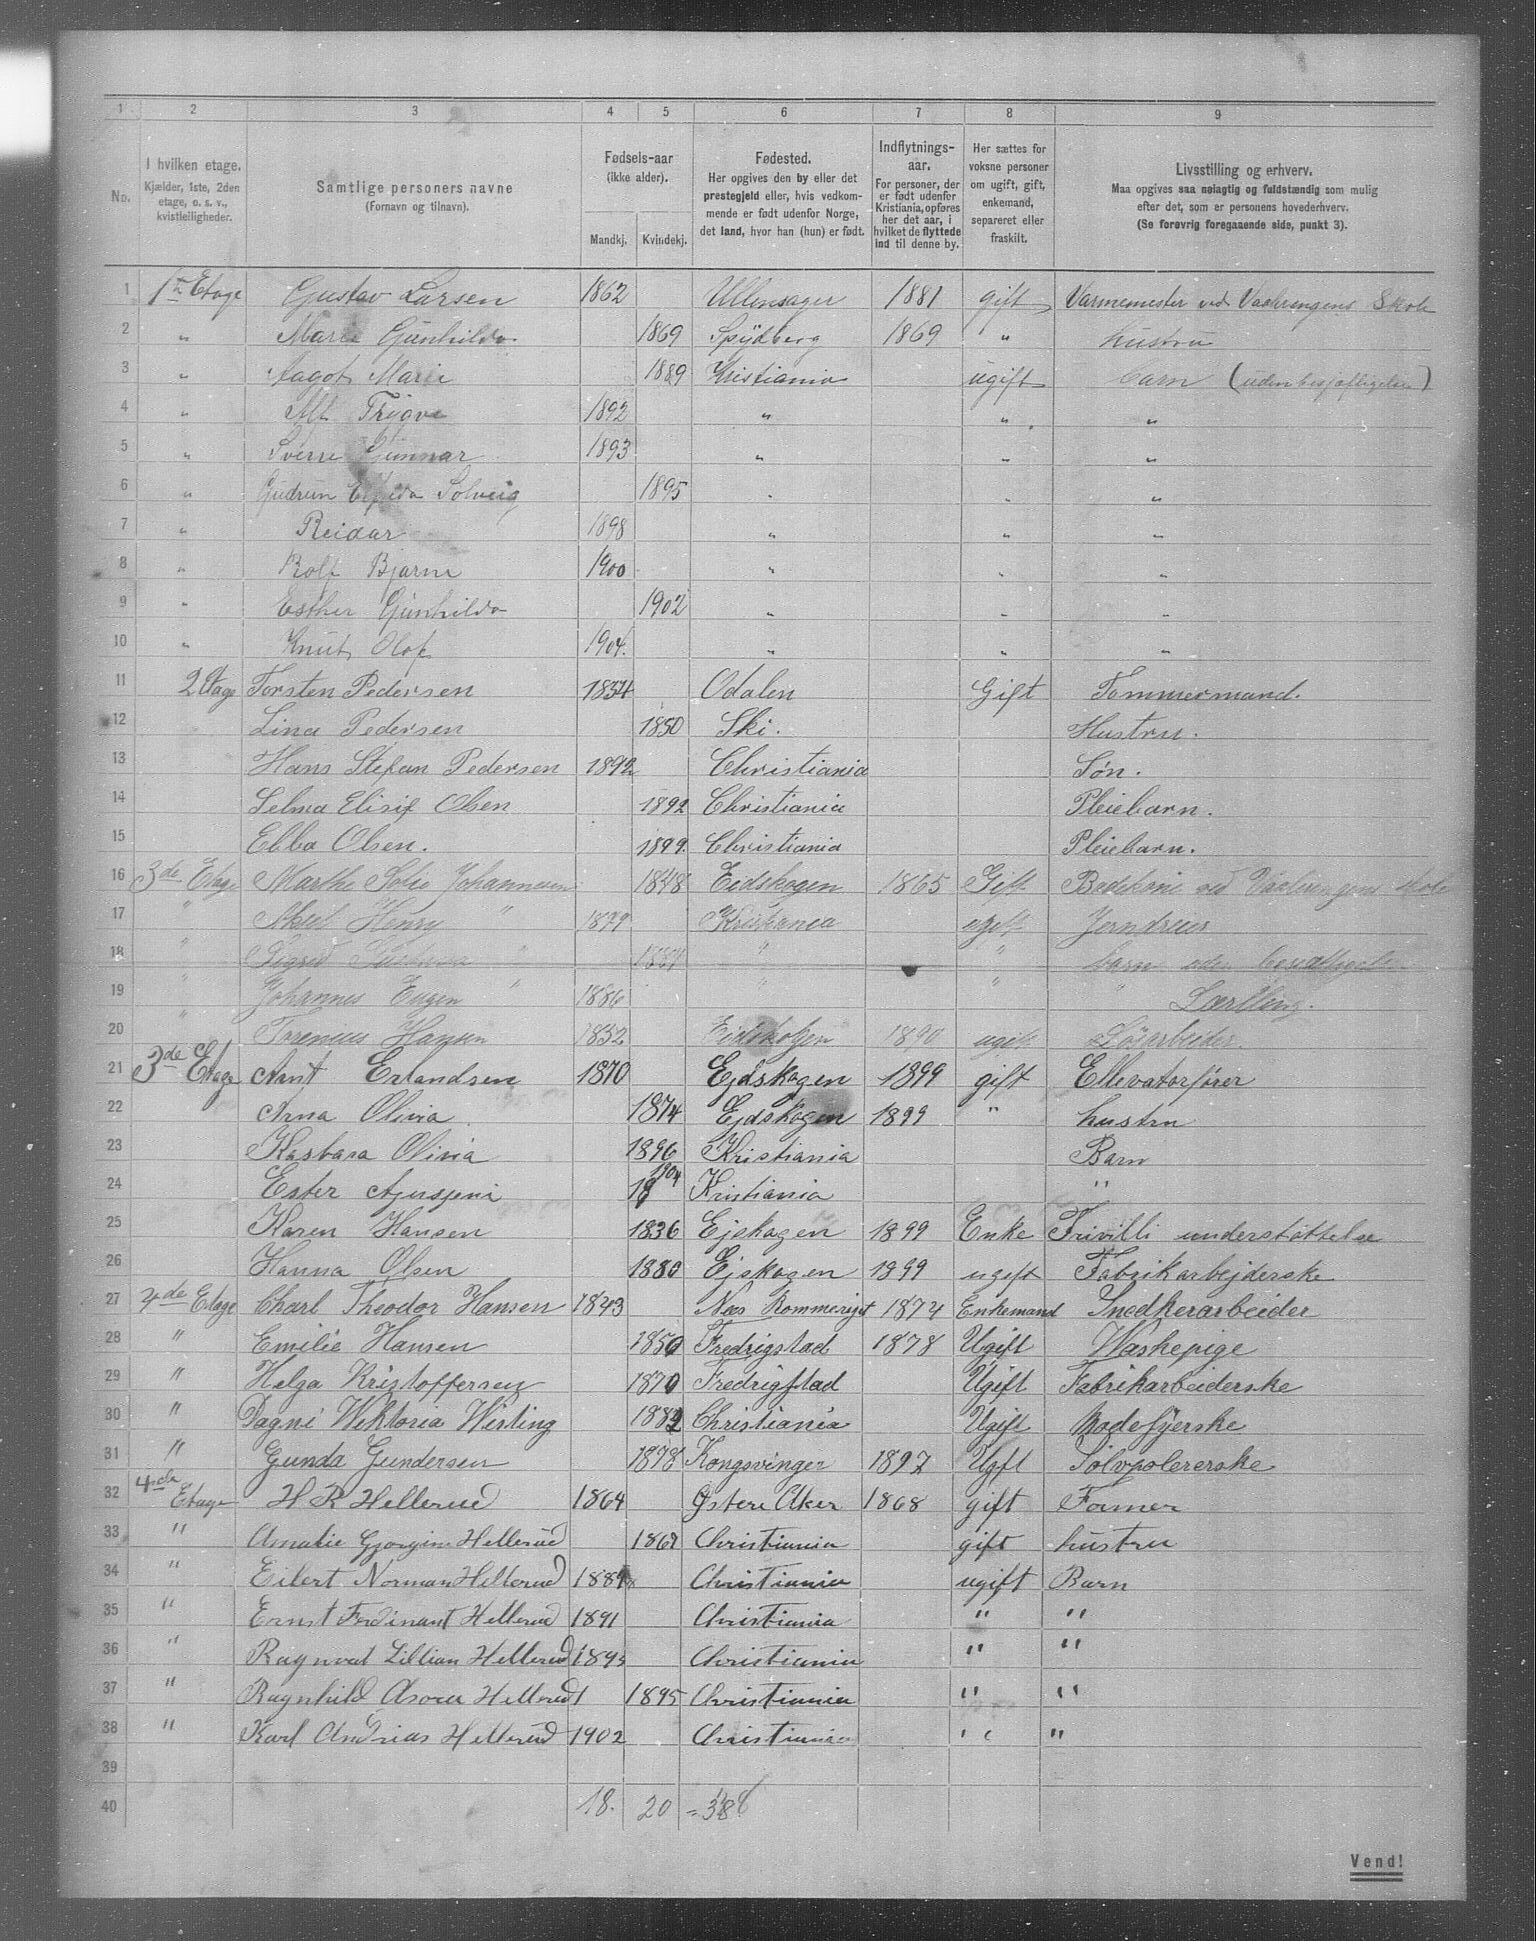 1 2 3 4 5 6 7 8 9
No. I hvilken etage. Kjælder, 1ste, 2den etage, o. s. v., kvistleiligheder. Samtlige personers navne (Fornavn og tilnavn). Fødsels-aar (ikke alder). Mandkj. Kvindekj. Fødested. Her opgives den by eller det prestegjeld eller, hvis vedkommende er født udenfor Norge, det land, hvor han (hun) er født. Indflytnings-aar. For personer, der er født udenfor Kristiania, opføres her det aar, i hvilket de flyttede ind til denne by. Her sættes for voksne personer om ugift, gift, enkemand, separeret eller fraskilt. Livsstilling og erhverv. Maa opgives saa nøiagtig og fuldstændig som mulig efter det, som er personens hovederhverv. (Se forøvrig foregaaende side, punkt 3).
1 1ste Etage Gustav Larsen 1862 Ullensager 1881 gift Varmemester ved Vaalerengens Skole
2 " Marie Gunhilda 1869 Spydberg 1869 " hustru
3 " Aagot Marie 1889 Kristiania ugift barn (uden besjæftigelse)
4 " Alf Trygve 1892 " " "
5 " Sverre Gunnar 1893 " " "
6 " Gudrun Solveig 1895 " " "
7 " Reidar 1898 " " "
8 " Rolf Bjarne 1900 " " "
9 " Esther Gunhilda 1902 " " "
10 " Knut Olof 1904. " " "
11 2 Etage Torsten Pedersen 1854 Odalen Gift Tømmermand.
12 Lina Pedersen 1850 Ski. Hustru.
13 Hans Stefan Pedersen 1892 Christiania Søn.
14 Selma Elisif Olsen 1892 Christiania Pleiebarn.
15 Ebba Olsen. 1899. Christiania Pleiebarn.
16 3de Etage Marthe Sofie Johannesen 1848 Eidskogen 1865 Gift Badekone ved Vaalerengens skole
17 " Aksel Henry " 1879 Kristiania ugift Jerndreier
18 " Sigrid " " " barn uden
19 " Johannes Eugen " 1886 " " " Lærling.
20 " Hansen 1852 Eidskogen 1890 ugift Løsarbeider.
21 3de Etage Arnt Erlandsen 1870 Ejdskogen 1899 gift Ellevatorfører
22 Arna Olivia 1874 Ejdskogen 1899 " hustru
23 Kasbara Olivia 1896 Kristiania Barn
24 Ester 1904 Kristiania "
25 Karen Hansen 1836 Ejskogen 1899 Enke Frivilli understøttelse
26 Hanna Olsen 1880 Ejskogen 1899 ugeft Fabrikarbejderske
27 4de Etage Charl Theodor Hansen 1843 Næs Rommeriget 1874 Enkemand Snedkerarbeider
28 " Emilie Hansen 1850 Fredrigstad 1878 Ugift Waskepige
29 " Helga Kristoffersen 1870 Fredrigstad Ugift Fabrikarbeiderske
30 " Dagni Wiktoria Wisting 1882 Christiania Ugift Modesyerske
31 " Gunda Gundersen 1878 Kongsvinger 1897 Ugft Sølvpolererske
32 4de Etage H R Hellerud 1864 Østere Aker 1868 gift Former
33 " Amalie Gjorgine Hellerud 1869 Christiania gift hustru
34 " Eilert Norman Hellerud 1889 Christiania ugift Barn
35 " Ernst Ferdinant Hellerud 1891 Christiania " "
36 " Ragnvat Lillian Hellerud 1893 Christiania " "
37 " Ragnhild Hellerud 1895 Christiania " "
38 " Karl Andrias Hellerud 1902 Christiania " "
39
40 18. 20 = 38
Vend!